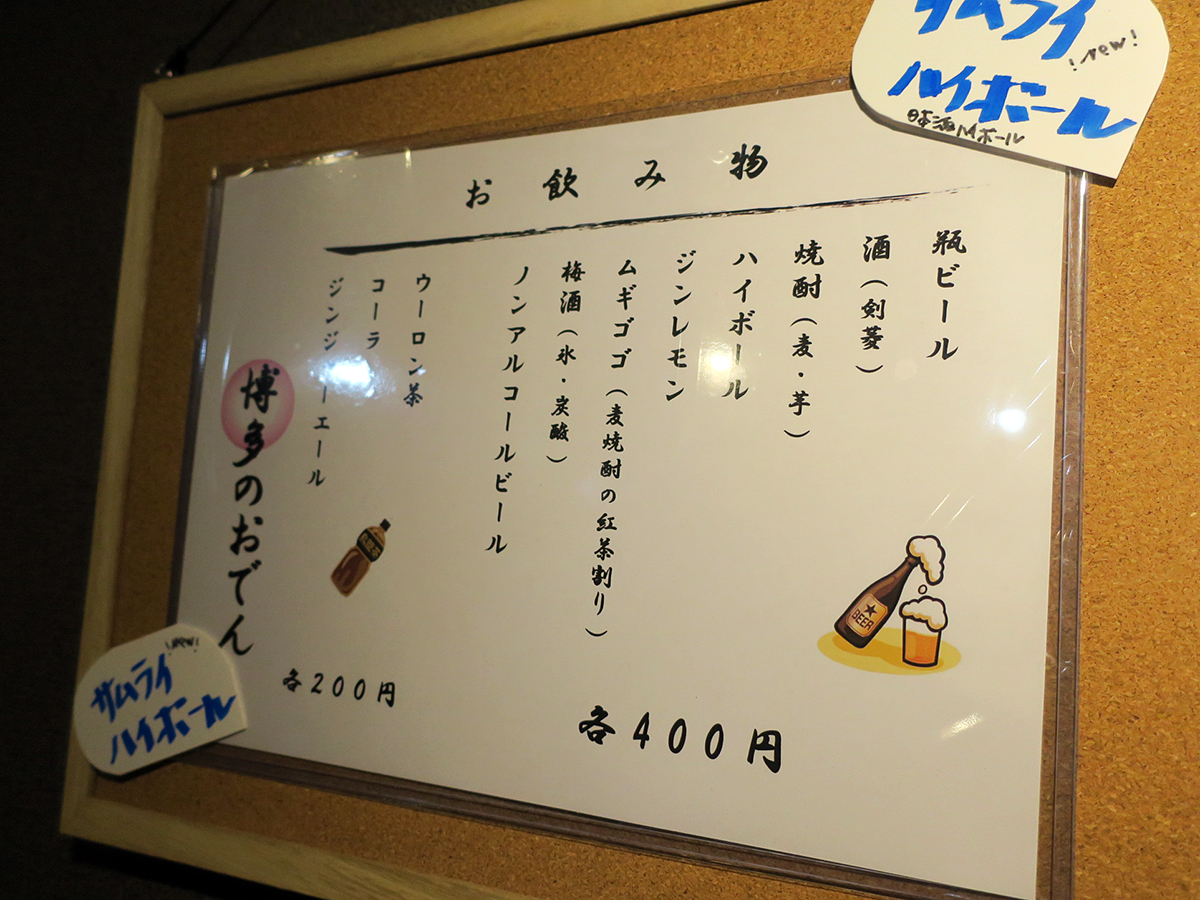 サムライ
!new!
ハイボール
日本酒ハイボール
お飲み物
瓶ビール
酒（剣菱）
焼酎（麦・芋）
ハイボール
ジンレモン
ムギゴゴ（麦焼酎の紅茶割り）
梅酒（氷・炭酸）
ノンアルコールビール
各400円
BEER
ウーロン茶
コーラ
ジンジャーエール
各200円
博多のおでん
!new!
サムライ
ハイボール